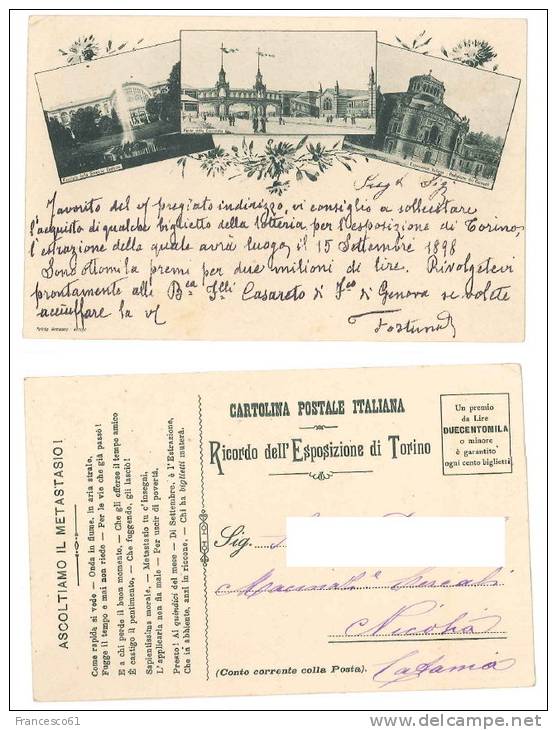 Favorito del vs/ pregiato indirizzo, vi consiglio a sollecitare
l'acquisto di qualche biglietto della lotteria per l'esposizione di Torino,
l'estrazione della quale avrà luogo il 15 Settembre 1898
Sono ottomila premi per due milioni di lire. Rivolgetevi
prontamente alla Bca Flli Casareto di Fco di Genova se volete
acciuffare la vs/
Fortuna
CARTOLINA POSTALE ITALIANA
Ricordo dell'Esposizione di Torino
Un premio
da Lire
DUECENTOMILA
o minore
è garantito
ogni cento biglietti
Sig.
Nicosia
(Conto corrente colla Posta).
Catania
ASCOLTIAMO IL METASTASIO!
Come rapida si vede — Onda in fiume, in aria strale,
Fugge il tempo e mai non riede — Per le vie che già passò!
E a chi perde il buon momento, — Che gli offerse il tempo amico
È castigo il pentimento, — Che fuggendo, gli lasciò!
Sapientissima morale, — Metastasio tu c'insegni,
L'applicarla non fia male — Per uscir di povertà.
Presto! Ai quindici del mese — Di Settembre, è l'Estrazione,
Che ia abbiente, anzi in riccone, — Chi ha biglietti muterà.
Francesco61
http://www.delcampe.net